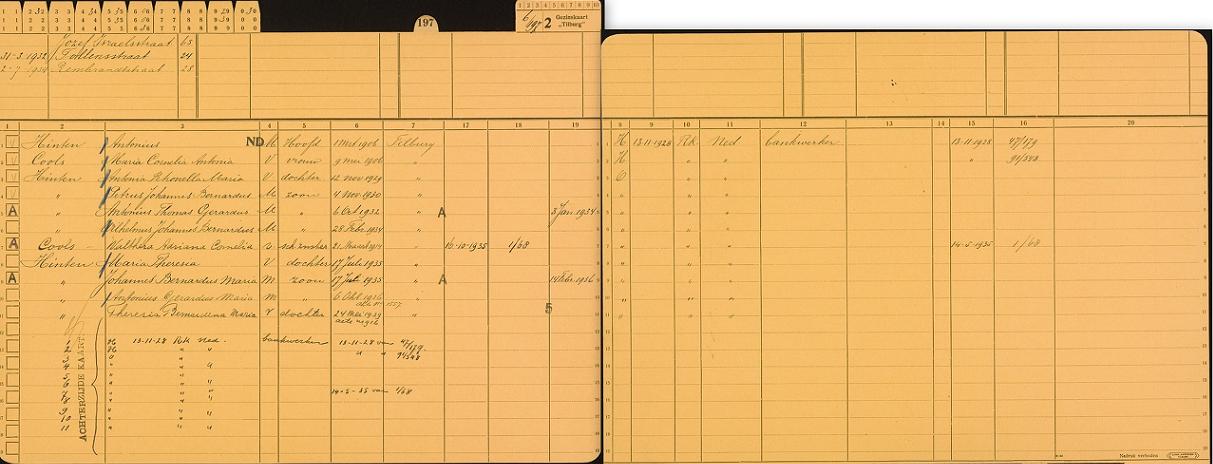 197
2 Gezinskaart „Tilburg"
Jozef Israelsstraat 65
31-3 1932 Tollensstraat 24
2-7 1934 Rembrandtstraat 28
1 2 3 4 5 6 7 17 18 19
8 9 10 11 12 13 14 15 16 20
Hinten Antonius ND M Hoofd 1906 Tilburg H 13-11-1928 Rk Ned bankwerker 13-11-1928 47/179
Cools Maria Cornelia Antonia V vrouw 9 mei 1906 „ H „ „ „ 94/348
Hinten Antonia Petronella Maria V dochter 12 Nov 1929 „ O „ „
„ Petrus Johannes Bernardus M zoon 4 Nov 1930 „ „ „ „
A „ Antonius Thomas Gerardus M „ 6 Oct 1932 „ A 3 Jan. 1934 „ „ „
„ Wilhelmus Johannes Bernardus M „ 28 Febr. 1934 „ „ „ „
A Cools Walthera Adriana Cornelia V 21 1914 „ 16-10-1935 1/68 „ „ „ 14-5-1935 1/68
Hinten Maria Theresia V dochter 17 Juli 1935 „ „ „ „
A „ Johannes Bernardus Maria M zoon 17 Juli 1935 „ A 14 Febr. 1936 „ „ „
„ Antonius Gerardus Maria M „ 6 Oct. 1936 „ „ „ „
akte no 1557
„ Theresia Bernardina Maria V dochter 24 Mei 1939 „ 5 „ „ „
ACHTERZIJDE KAART
1 H 13-11-28 Rk Ned. bankwerker 13-11-28 van 47/179
2 H „ „ „ „ 94/348
3 „ „ „
4 „ „ „
5 „ „ „
6 „ „ „
7 „ „ „ 14-5-35 van 1/68
8 „ „ „
9 „ „ „
10 „ „ „
11 „ „ „
Nadruk verboden